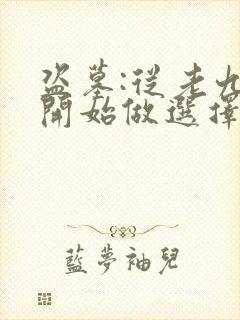 盜墓:從老九
開始做選擇
藍夢袖兒